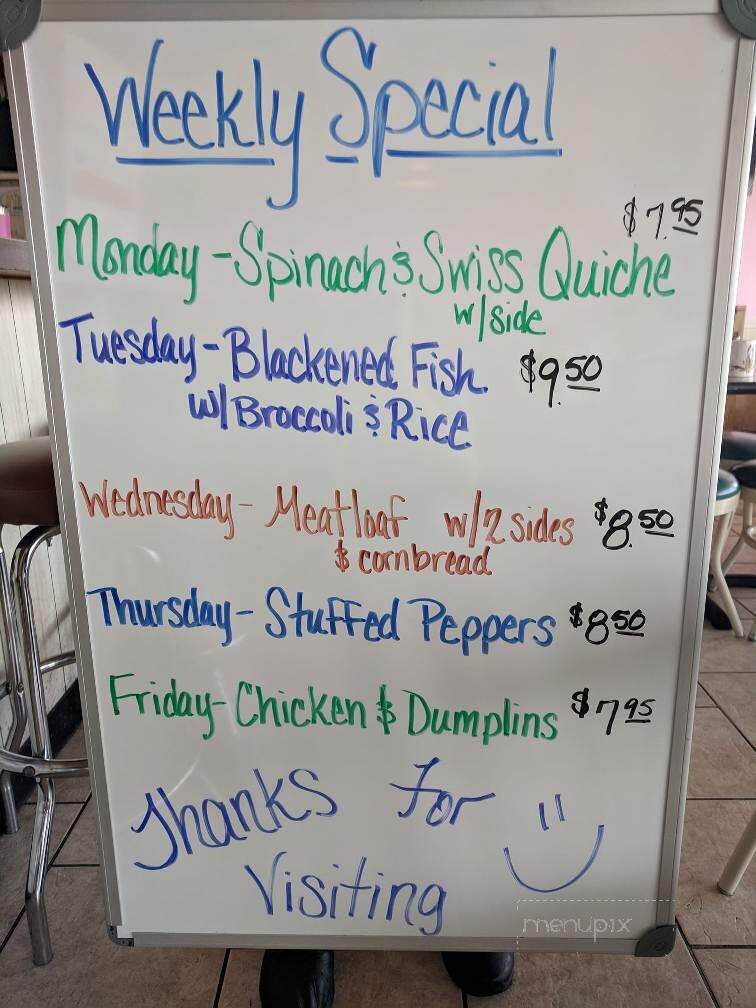 Weekly Special
$7.95
Monday - Spinach & Swiss Quiche
w/side
Tuesday - Blackened Fish $9.50
w/Broccoli & Rice
Wednesday - Meatloaf w/2 sides $8.50
& cornbread
Thursday - Stuffed Peppers $8.50
Friday - Chicken & Dumplins $7.95
Thanks for
Visiting
menupix